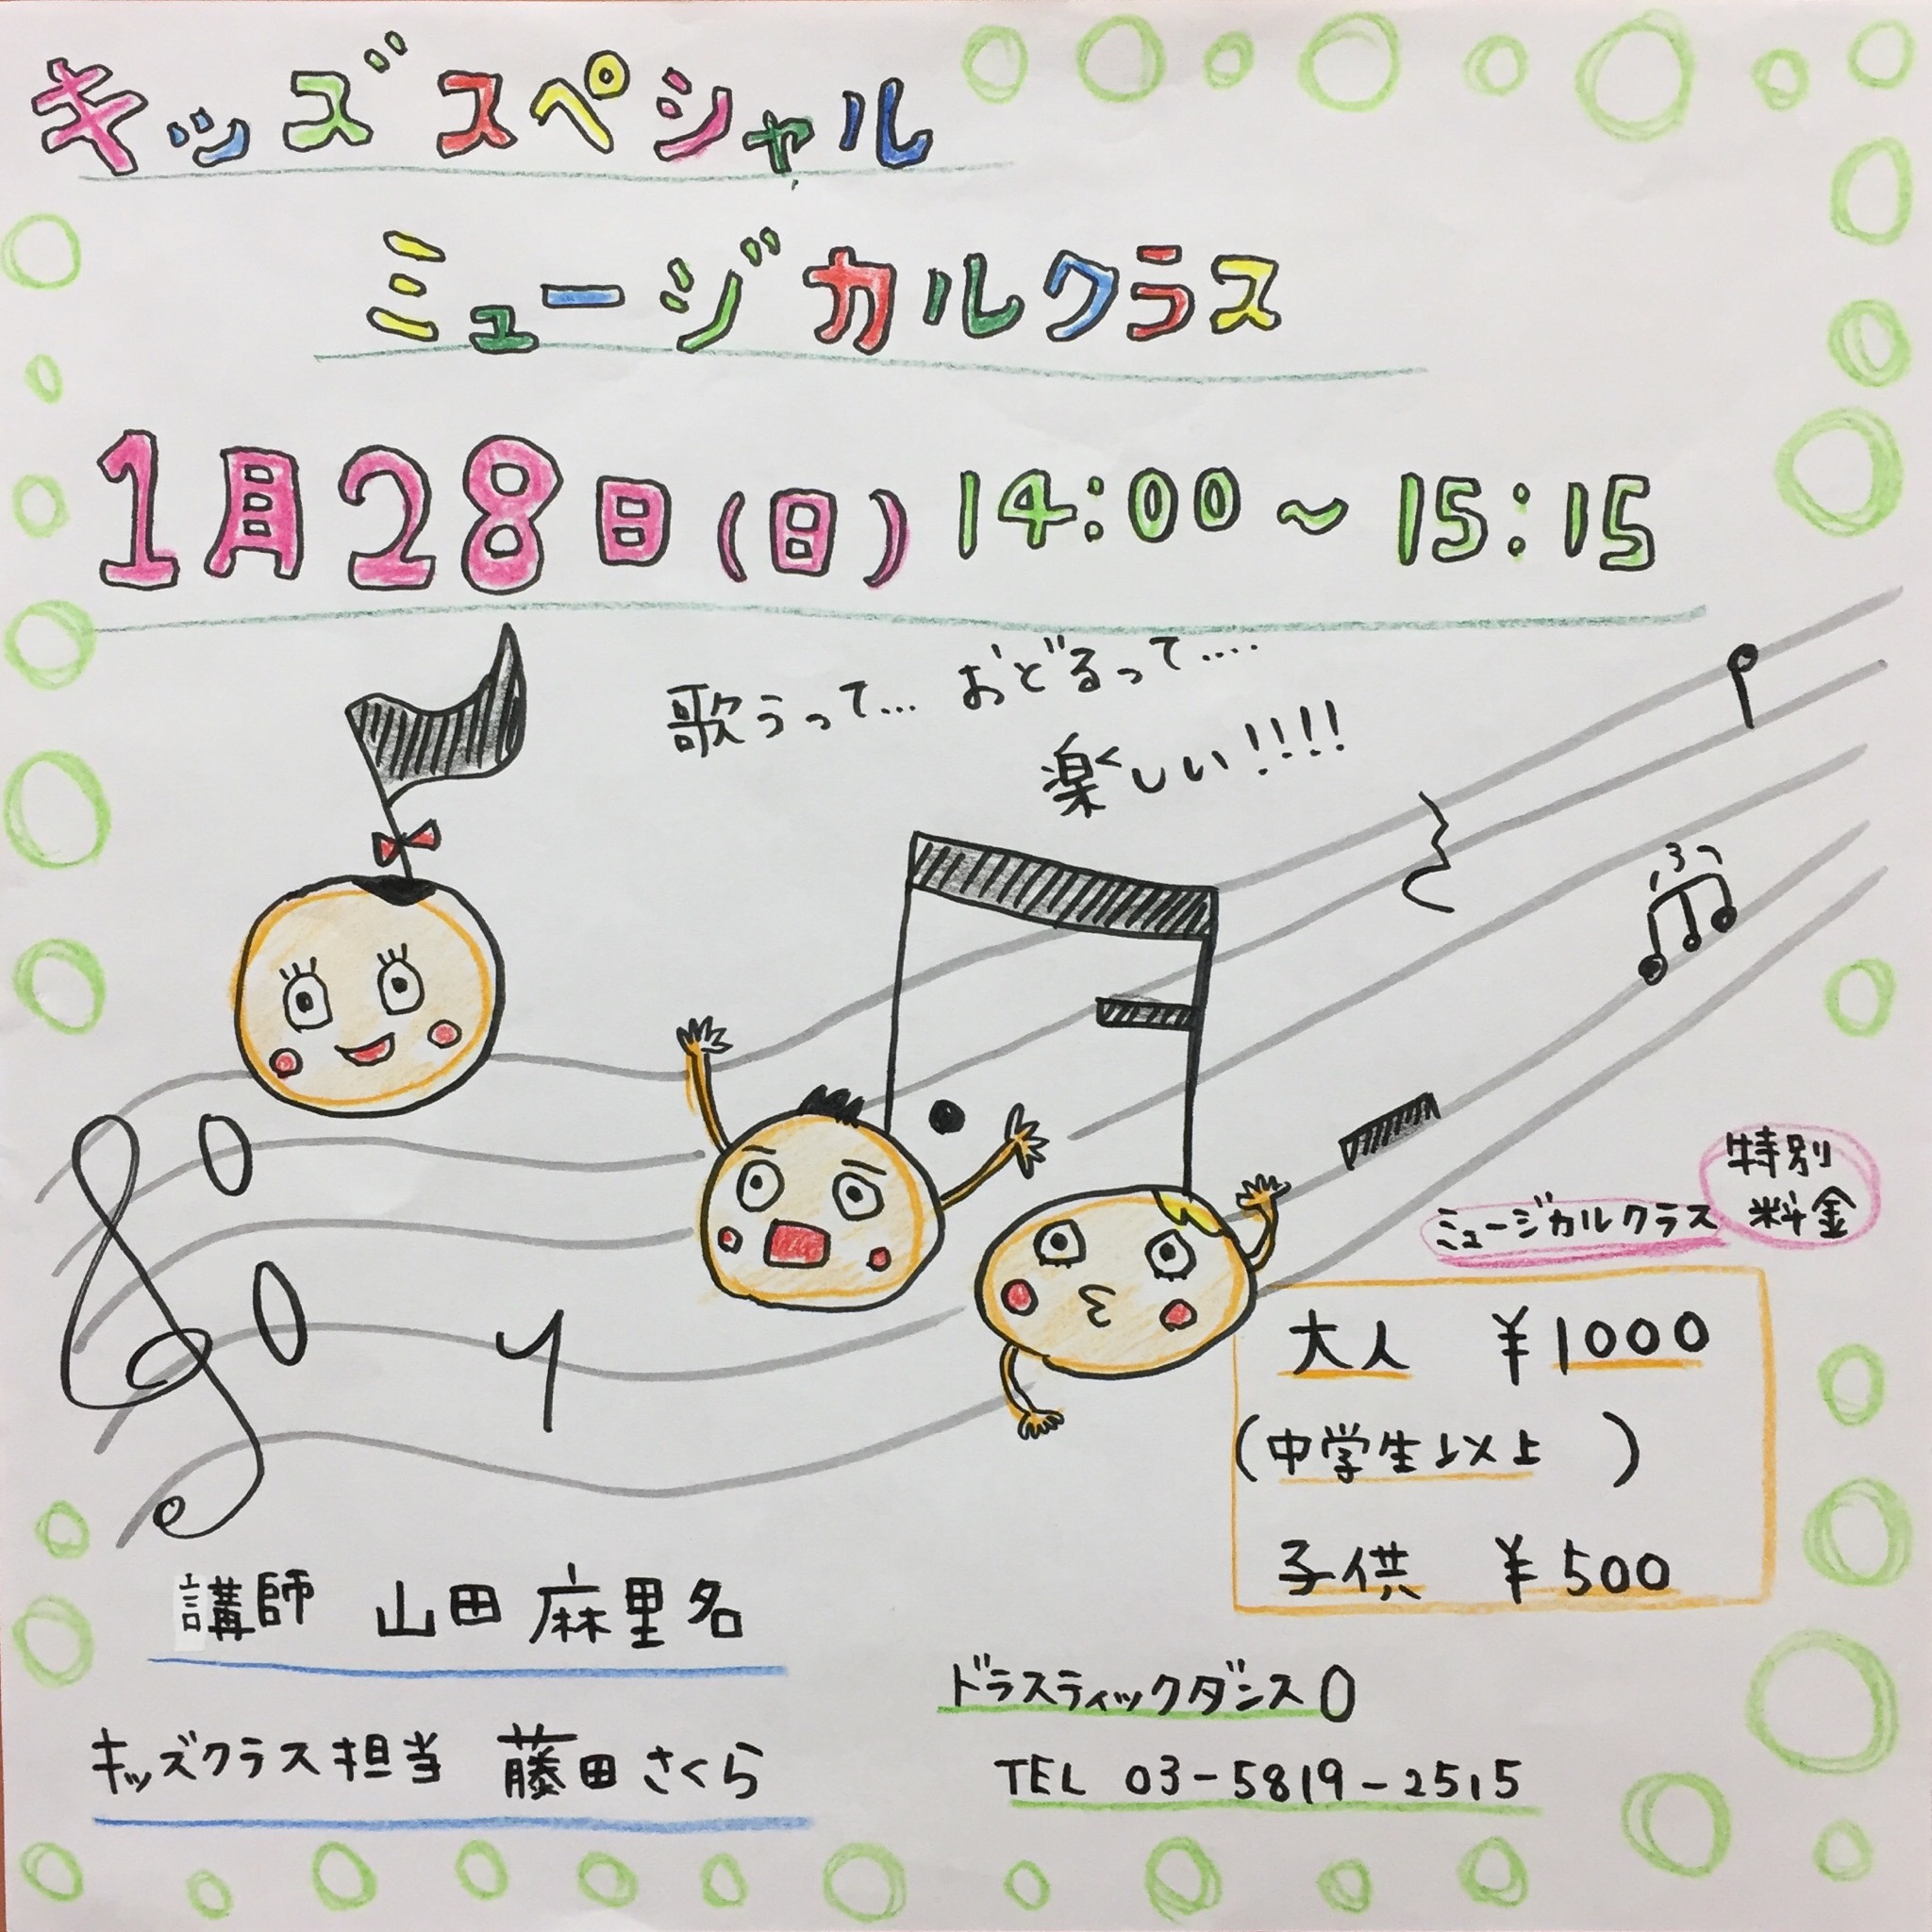 キッズスペシャル
ミュージカルクラス
1月28日(日) 14:00~15:15
歌うって... おどるって....
楽しい!!!!
特別
料金
ミュージカルクラス
大人 ¥1000
(中学生以上 )
子供 ¥500
講師 山田 麻里名
キッズクラス担当 藤田さくら
ドラスティックダンスO
TEL 03-5819-2515